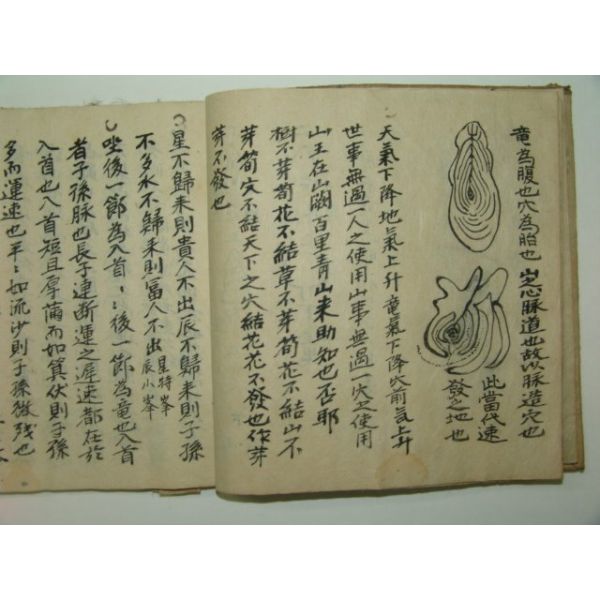 竜為腹也穴為胎也 山之心脉道也故以脉造穴也
此當代速
發之地也
天氣下降地氣上升竜氣下降穴前氣上升
世事無過一人之使用山事無過一穴之使用
山王在山閣百里青山来助知也否耶
樹不芽筍花不結草不芽筍花不結山不
芽筍穴不結天下之穴結花花不發也作芽
芽不發也
星不歸来則貴人不出辰不歸来則子孫
不多水不歸来則富人不出 星特峯
辰小峯
坐後一節為入首〻後一節為竜也入首
者子孫脉也長子連断運之遅速都在於
入首也入首短且厚薄而如算伏則子孫
多而運速也平〻如流沙則子孫微残也